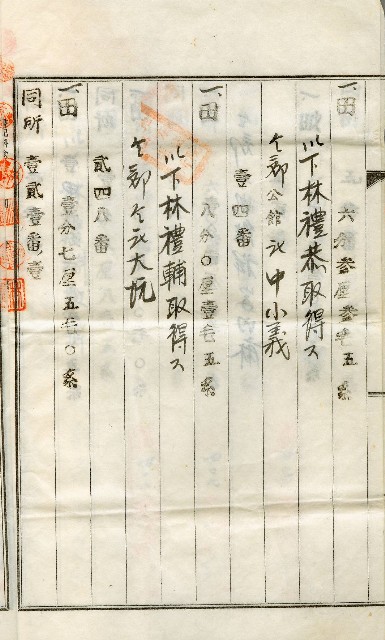 一田 五六分参厘参毛五糸
以下林禮恭取得ス
仝郡公館 中小義
壹四番
一田 八分〇厘壹毛五糸
以下林禮輔取得ス
仝郡仝 大坑
貳四八番
一田 壹分七厘五毛〇糸
同所 壹貳壹番ノ壹